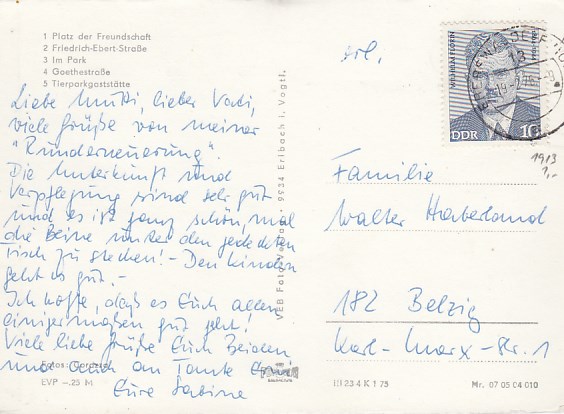 1 Platz der Freundschaft
2 Friedrich-Ebert-Straße
3 Im Park
4 Goethestraße
5 Tierparkgaststätte
Liebe Mutti, lieber Vati,
viele Grüße von meiner
"Runderneuerung".
Die Unterkunft und
Verpflegung sind sehr gut
und es ist ganz schön, mal
die Beine unter den gedeckten
Tisch zu stecken! - Den Kindern
geht es gut. -
Ich hoffe, daß es Euch allen
einigermaßen gut geht!
Viele liebe Grüße Euch Beiden
und auch an Tante
Eure Sabine
Fotos:
EVP -.25 M
VEB Foto-Verlag 9934 Erlbach i. Vogtl.
DDR
10
EBERSWALDE
13
1913
1,-
Familie
Walter Haberland
182 Belzig
Karl-Marx-Str. 1
III 23 4 K 1 75
Nr. 07 05 04 010